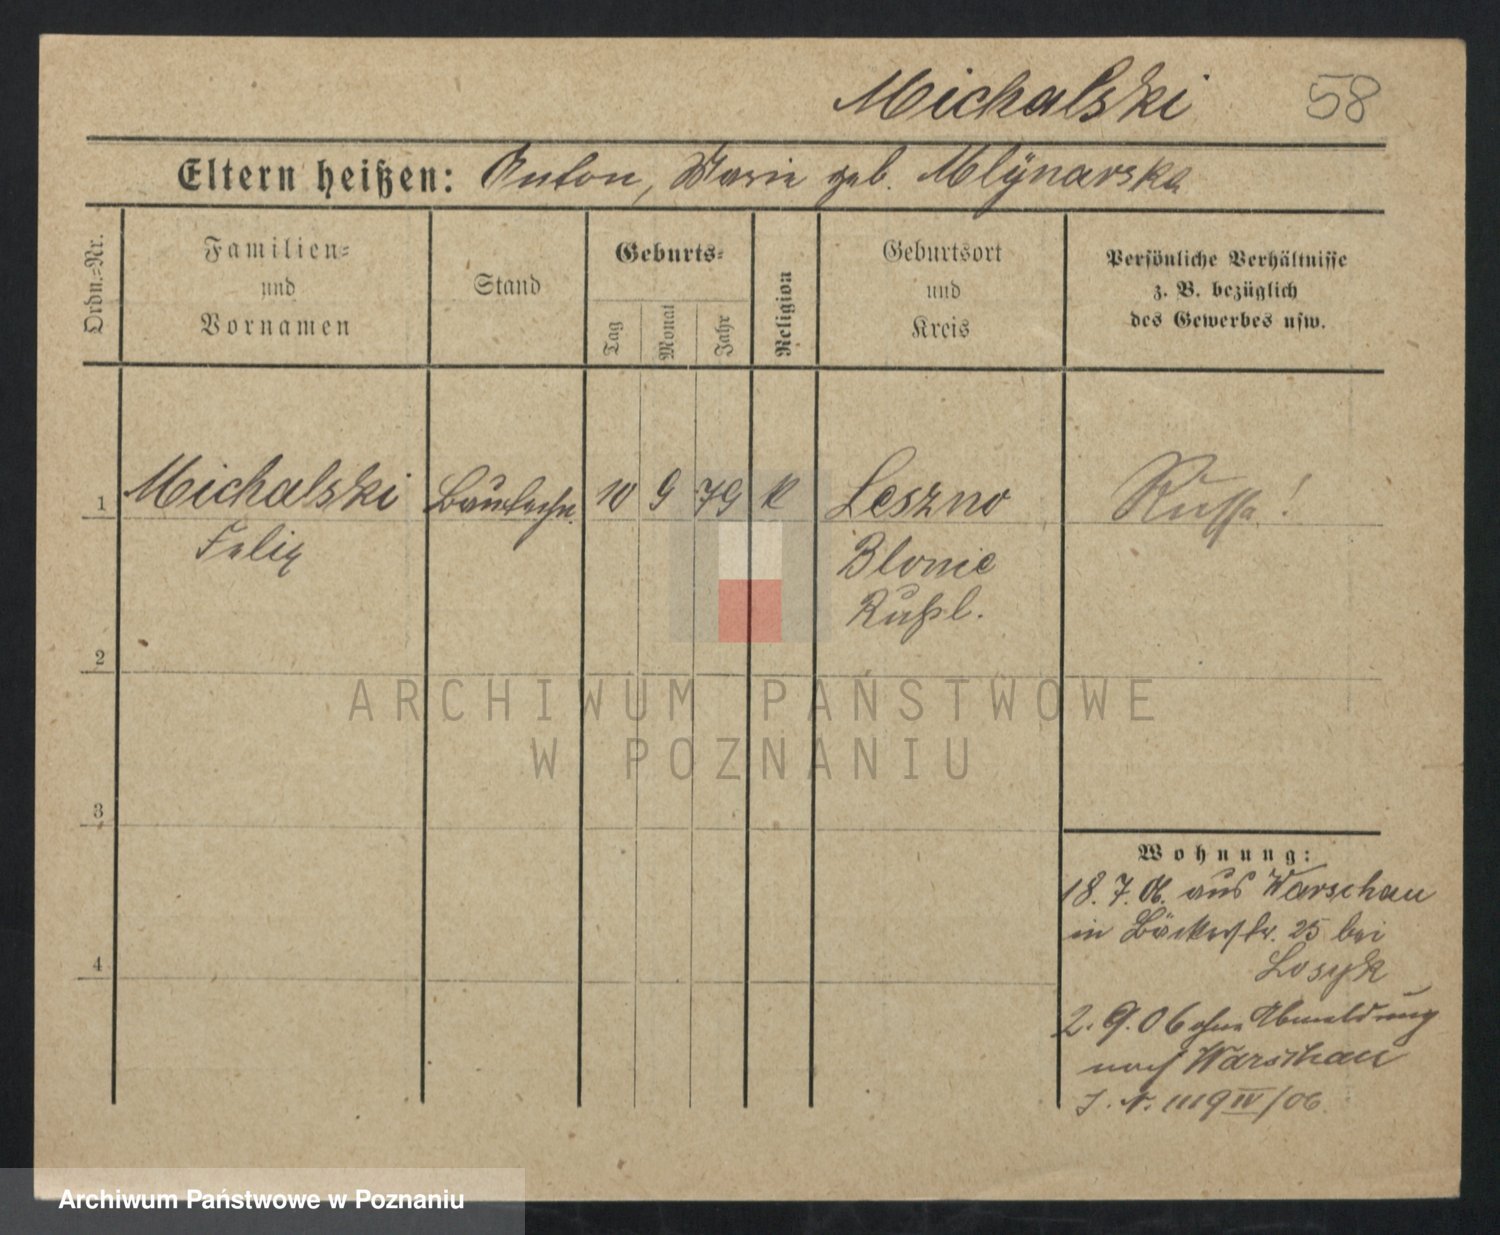 Michalski 58
Eltern heißen: Anton, Marie geb. Mlÿnarska
Ordn.-Nr.
Familien-
und
Vornamen
Stand
Geburts-
Tag
Monat
Jahr
Religion
Geburtsort
und
Kreis
Persönliche Verhältnisse
z. B. bezüglich
des Gewerbes usw.
1 Michalski 10 9 79 k Leszno Russe!
Felix Blonie
Rußl.
2
ARCHIWUM PAŃSTWOWE
W POZNANIU
3
4
Wohnung:
18. 7. 06. aus Warschau
in Bäckerstr. 25 bei
Losyk
2. 9. 06 ohne Abmeldung
nach Warschau
J. N. 1119 IV/06
Archiwum Państwowe w Poznaniu